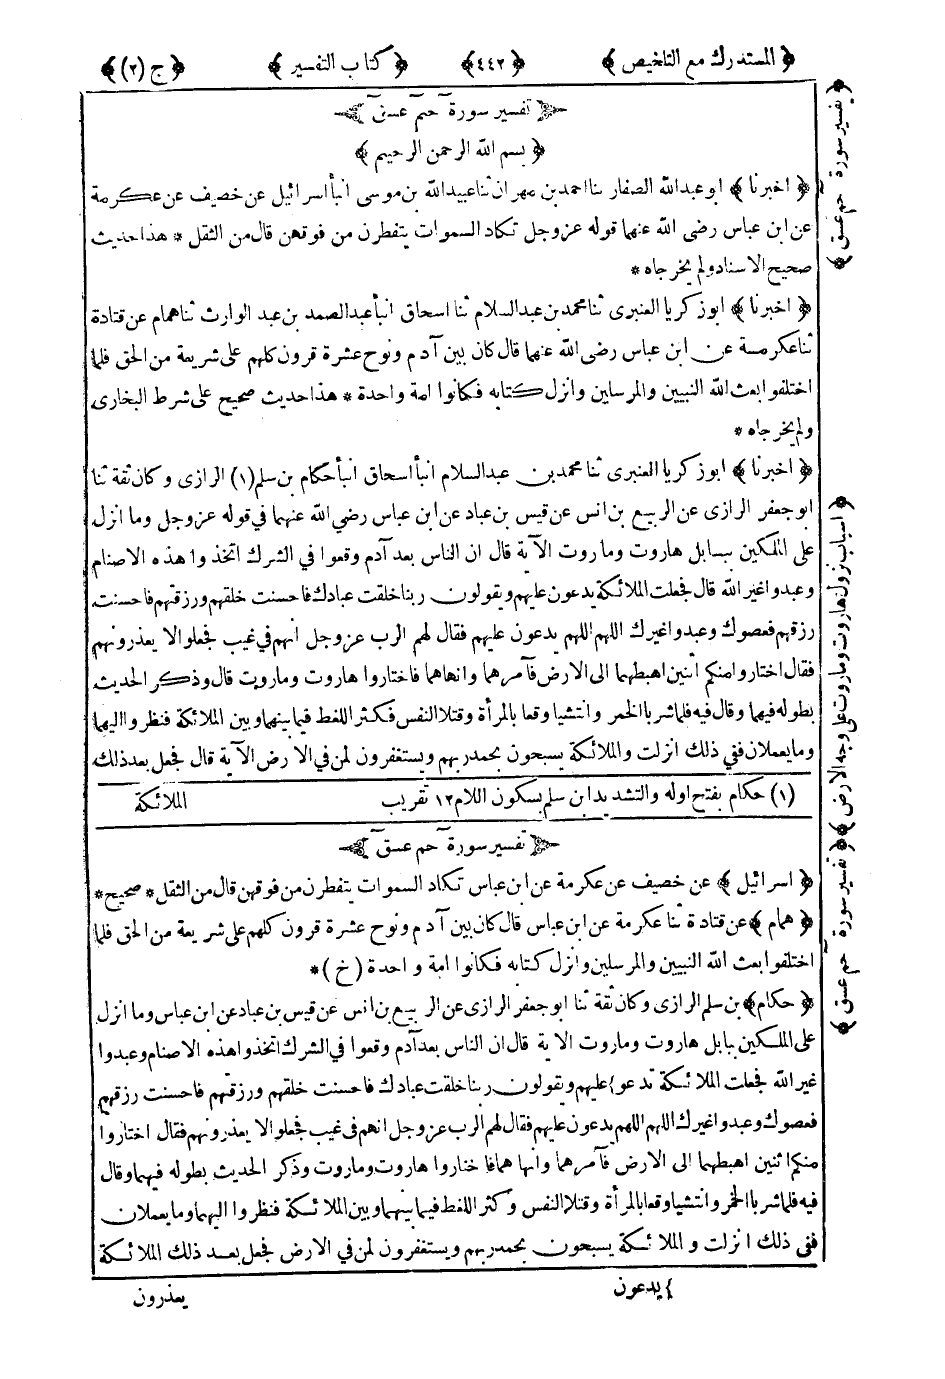 ﴿ المستدرك مع التلخيص ﴾ ﴿ ٤٤٢ ﴾ ﴿ كتاب التفسير ﴾ ﴿ ج (٢) ﴾
تفسير سورة حم عسق
﴿ بسم الله الرحمن الرحيم ﴾
﴿ اخبرنا ﴾ ابو عبدالله الصفار ثنا احمد بن مهران ثنا عبيدالله بن موسى انبأ اسرائيل عن خصيف عن عكرمة
عن ابن عباس رضى الله عنهما قوله عزوجل تكاد السموات يتفطرن من فوقهن قال من الثقل * هذا حديث
صحيح الاسناد ولم يخرجاه *
﴿ اخبرنا ﴾ ابو زكريا العنبرى ثنا محمد بن عبدالسلام ثنا اسحاق انبأ عبدالصمد بن عبد الوارث ثنا همام عن قتادة
ثنا عكرمة عن ابن عباس رضى الله عنهما قال كان بين آدم ونوح عشرة قرون كلهم على شريعة من الحق فلما
اختلفوا بعث الله النبيين والمرسلين وانزل كتابه فكانوا امة واحدة * هذا حديث صحيح على شرط البخارى
ولم يخرجاه *
﴿ اخبرنا ﴾ ابوز كريا العنبرى ثنا محمد بن عبدالسلام انبأ اسحاق انبأ حكام بن سلم (١) الرازى وكان ثقة ثنا
ابو جعفر الرازى عن الربيع بن انس عن قيس بن عباد عن ابن عباس رضي الله عنهما في قوله عزوجل وما انزل
على الملكين ببابل هاروت وماروت الآية قال ان الناس بعد آدم وقعوا في الشرك اتخذوا هذه الاصنام
وعبدوا غير الله قال فجعلت الملائكة يدعون عليهم ويقولون ربنا خلقت عبادك فاحسنت خلقهم ورزقتهم فاحسنت
رزقهم فعصوك وعبدوا غيرك اللهم اللهم يدعون عليهم فقال لهم الرب عزوجل انهم في غيب فجعلوا لا يعذرونهم
فقال اختاروا منكم اثنين اهبطهما الى الارض فآمرهما وانهاهما فاختاروا هاروت وماروت قال وذكر الحديث
بطوله فيهما وقال فيه فلما شربا الخمر وانتشيا وقعا بالمرأة وقتلا النفس فكثر اللغط فيما بينهما وبين الملائكة فنظروا اليهما
وما يعملان ففي ذلك انزلت والملائكة يسبحون بحمد ربهم ويستغفرون لمن في الارض الآية قال فجعل بعد ذلك
الملائكة
(١) حكام بفتح اوله والتشديد ابن سلم بسكون اللام ١٢ تقريب
تفسير سورة حم عسق
﴿ اسرائيل ﴾ عن خصيف عن عكرمة عن ابن عباس تكاد السموات يتفطرن من فوقهن قال من الثقل * صحيح *
﴿ همام ﴾ عن قتادة ثنا عكرمة عن ابن عباس قال كان بين آدم ونوح عشرة قرون كلهم على شريعة من الحق فلما
اختلفوا بعث الله النبيين والمرسلين وانزل كتابه فكانوا امة واحدة ( خ ) *
﴿ حكام ﴾ بن سلم الرازى وكان ثقة ثنا ابو جعفر الرازى عن الربيع بن انس عن قيس بن عباد عن ابن عباس وما انزل
على الملكين ببابل هاروت وماروت الاية قال ان الناس بعد آدم وقعوا في الشرك اتخذوا هذه الاصنام وعبدوا
غير الله فجعلت الملائكة تدعو} عليهم وتقولون ربنا خلقت عبادك فاحسنت خلقهم ورزقتهم فاحسنت رزقهم
فعصوك وعبدوا غيرك اللهم اللهم يدعون عليهم فقال لهم الرب عزوجل انهم في غيب فجعلوا لا يعذرونهم فقال اختاروا
منكم اثنين اهبطهما الى الارض فآمرهما وانهاهما فاختاروا هاروت وماروت وذكر الحديث بطوله فيهما وقال
فيه فلما شربا الخمر وانتشيا وقعا بالمرأة وقتلا النفس وكثر اللغط فيما بينهما وبين الملائكة فنظروا اليهما وما يعملان
ففى ذلك انزلت والملائكة يسبحون بحمد ربهم ويستغفرون لمن في الارض فجعل بعد ذلك الملائكة
} يدعون
يعذرون
﴿ تفسير سورة حم عسق ﴾
﴿ اسباب نزول هاروت وماروت على وجه الارض ﴾
﴿ تفسير سورة حم عسق ﴾